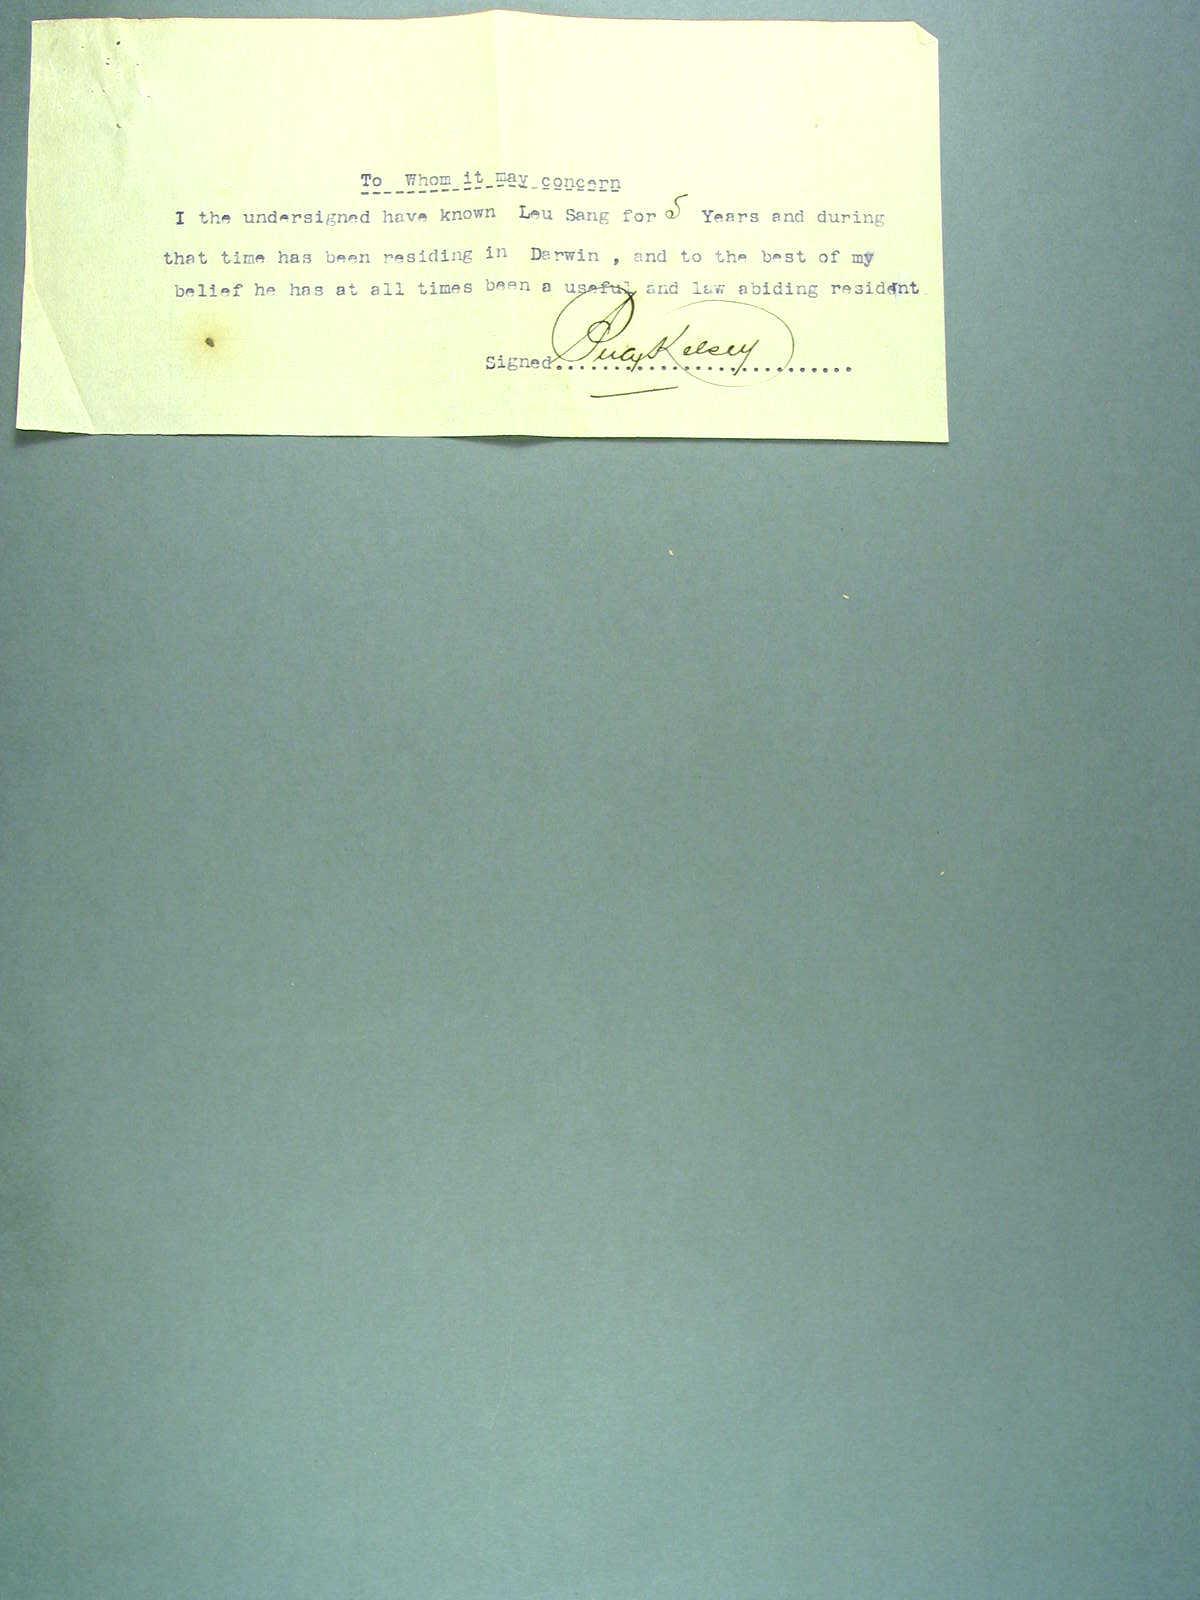 To Whom it may concern
I the undersigned have known Leu Sang for 5 Years and during
that time has been residing in Darwin , and to the best of my
belief he has at all times been a useful and law abiding resident
Signed.......................... Percy Kelsey